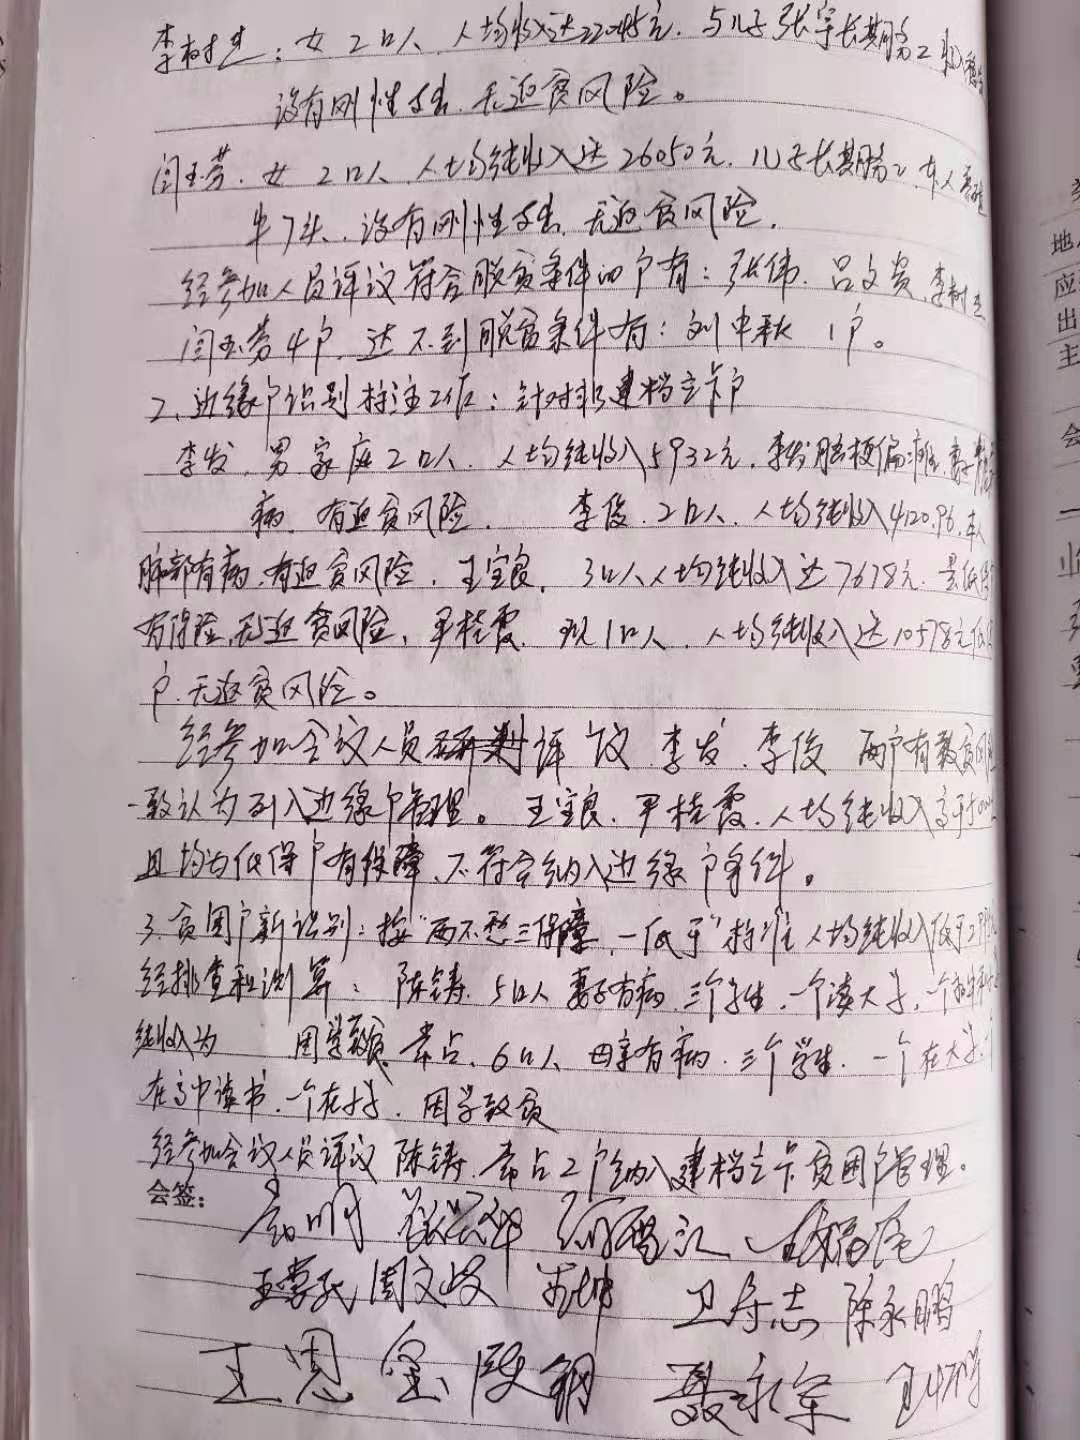 李树兰：女 2口人、人均收入达22045元、与儿子张宇长期务工 收入稳
没有刚性支出、无返贫风险。
闫玉芳、女 2口人、人均纯收入达26050元、儿子长期务工、本人养
牛7头、没有刚性支出、无返贫风险、
经参加人员评议符合脱贫条件的户有：张伟、吕文贵、李树兰
闫玉芳4户、达不到脱贫条件有：刘中秋 1户。
2、边缘户识别标注工作：针对非建档立卡户
李发、男 家庭2口人、人均纯收入5932元、李发脑梗偏瘫、妻子
病、有返贫风险、 李俊、2口人、人均纯收入4120.96、本人
肺部有病、有返贫风险、王宝良、3口人人均纯收入达7678元、是低保
有保险、无返贫风险、尹桂霞、现1口人、人均纯收入达10578元低保
户、无返贫风险。
经参加会议人员评议 李发、李俊 两户有致贫风险
一致认为列入边缘户管理。王宝良、尹桂霞、人均纯收入高于5000
且均为低保户有保障、不符合纳入边缘户条件。
3、贫困户新识别：按"两不愁三保障、一低于"标准 人均纯收入低于
经排查和测算：陈铸、5口人 妻子有病、三个学生、一个读大学、一个
纯收入为 因学致贫、常占、6口人 母亲有病、三个学生、一个在大学、
在高中读书、一个在小学、因学致贫
经参加会议人员评议 陈铸、常占2户纳入建档立卡贫困户管理。
会签：
周文
卫存志 陈永鹏
王恩宝 段钢 聂永军